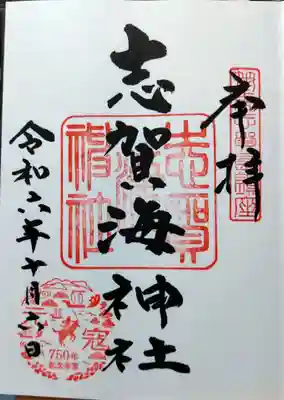 奉拝
志賀海神社
志賀海神社
令和六年十月六日
750年